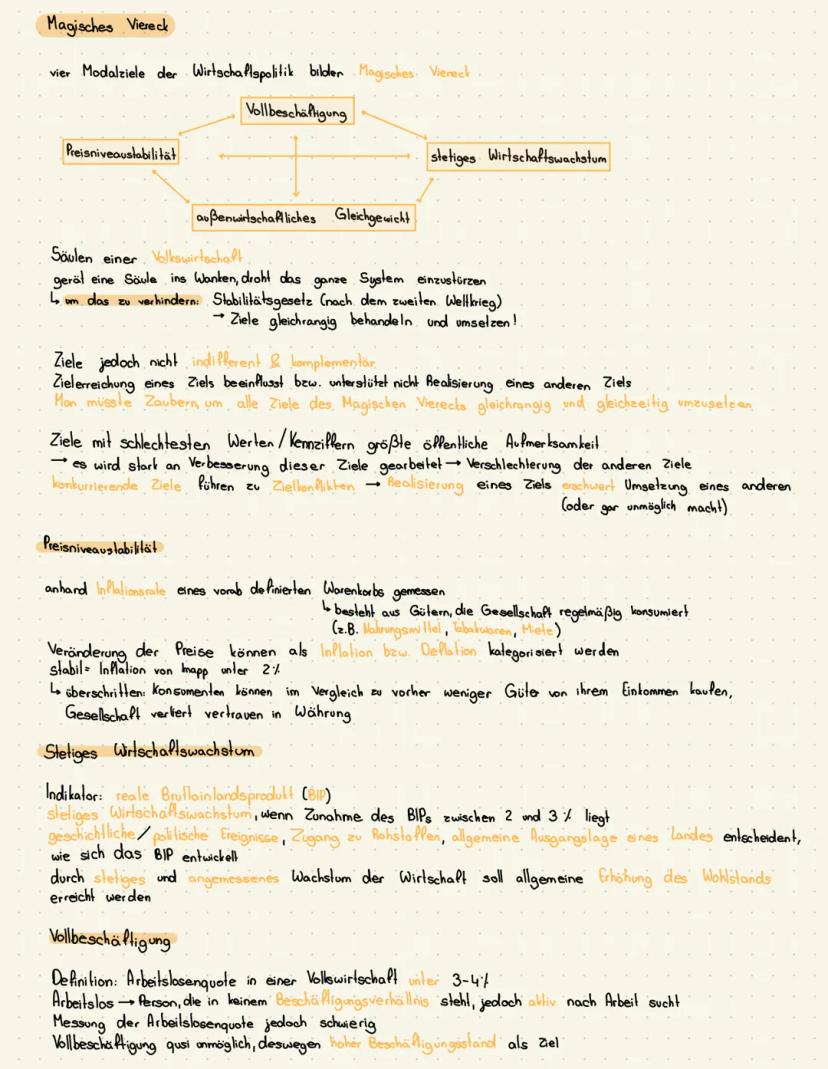 Magisches Viereck
vier Modalziele der Wirtschaftspolitik bilden Magisches Viereck
Vollbeschäftigung
Preisniveaustabilität
stetiges Wirtschaftswachstum
außenwirtschaftliches Gleichgewicht
Säulen einer Volkswirtschaft
gerät eine Säule ins Wanken, droht das ganze System einzustürzen
↳ um das zu verhindern: Stabilitätsgesetz (nach dem zweiten Weltkrieg)
→ Ziele gleichrangig behandeln und umsetzen!
Ziele jedoch nicht indifferent & komplementär
Zielerreichung eines Ziels beeinflusst bzw. unterstützt nicht Realisierung eines anderen Ziels
Man müsste Zaubern, um alle Ziele des Magischen Vierecks gleichrangig und gleichzeitig umzusetzen
Ziele mit schlechtesten Werten/Kennziffern größte öffentliche Aufmerksamkeit
→ es wird stark an Verbesserung dieser Ziele gearbeitet → Verschlechterung der anderen Ziele
konkurrierende Ziele führen zu Zielkonflikten → Realisierung eines Ziels erschwert Umsetzung eines anderen
(oder gar unmöglich macht)
Preisniveaustabilität
anhand Inflationsrate eines vorab definierten Warenkorbs gemessen
↳ besteht aus Gütern, die Gesellschaft regelmäßig konsumiert
(z.B. Nahrungsmittel, Tabakwaren, Miete)
Veränderung der Preise können als Inflation bzw. Deflation kategorisiert werden
stabil = Inflation von knapp unter 2%
↳ überschritten: Konsumenten können im Vergleich zu vorher weniger Güter von ihrem Einkommen kaufen,
Gesellschaft verliert vertrauen in Währung
Stetiges Wirtschaftswachstum
Indikator: reale Bruttoinlandsprodukt (BIP)
stetiges Wirtschaftswachstum, wenn Zunahme des BIPs zwischen 2 und 3% liegt
geschichtliche/politische Ereignisse, Zugang zu Rohstoffen, allgemeine Ausgangslage eines Landes entscheident,
wie sich das BIP entwickelt
durch stetiges und angemessenes Wachstum der Wirtschaft soll allgemeine Erhöhung des Wohlstands
erreicht werden
Vollbeschäftigung
Definition: Arbeitslosenquote in einer Volkswirtschaft unter 3-4%
Arbeitslos → Person, die in keinem Beschäftigungsverhältnis steht, jedoch aktiv nach Arbeit sucht
Messung der Arbeitslosenquote jedoch schwierig
Vollbeschäftigung qusi unmöglich, deswegen hoher Beschäftigungsstand als Ziel